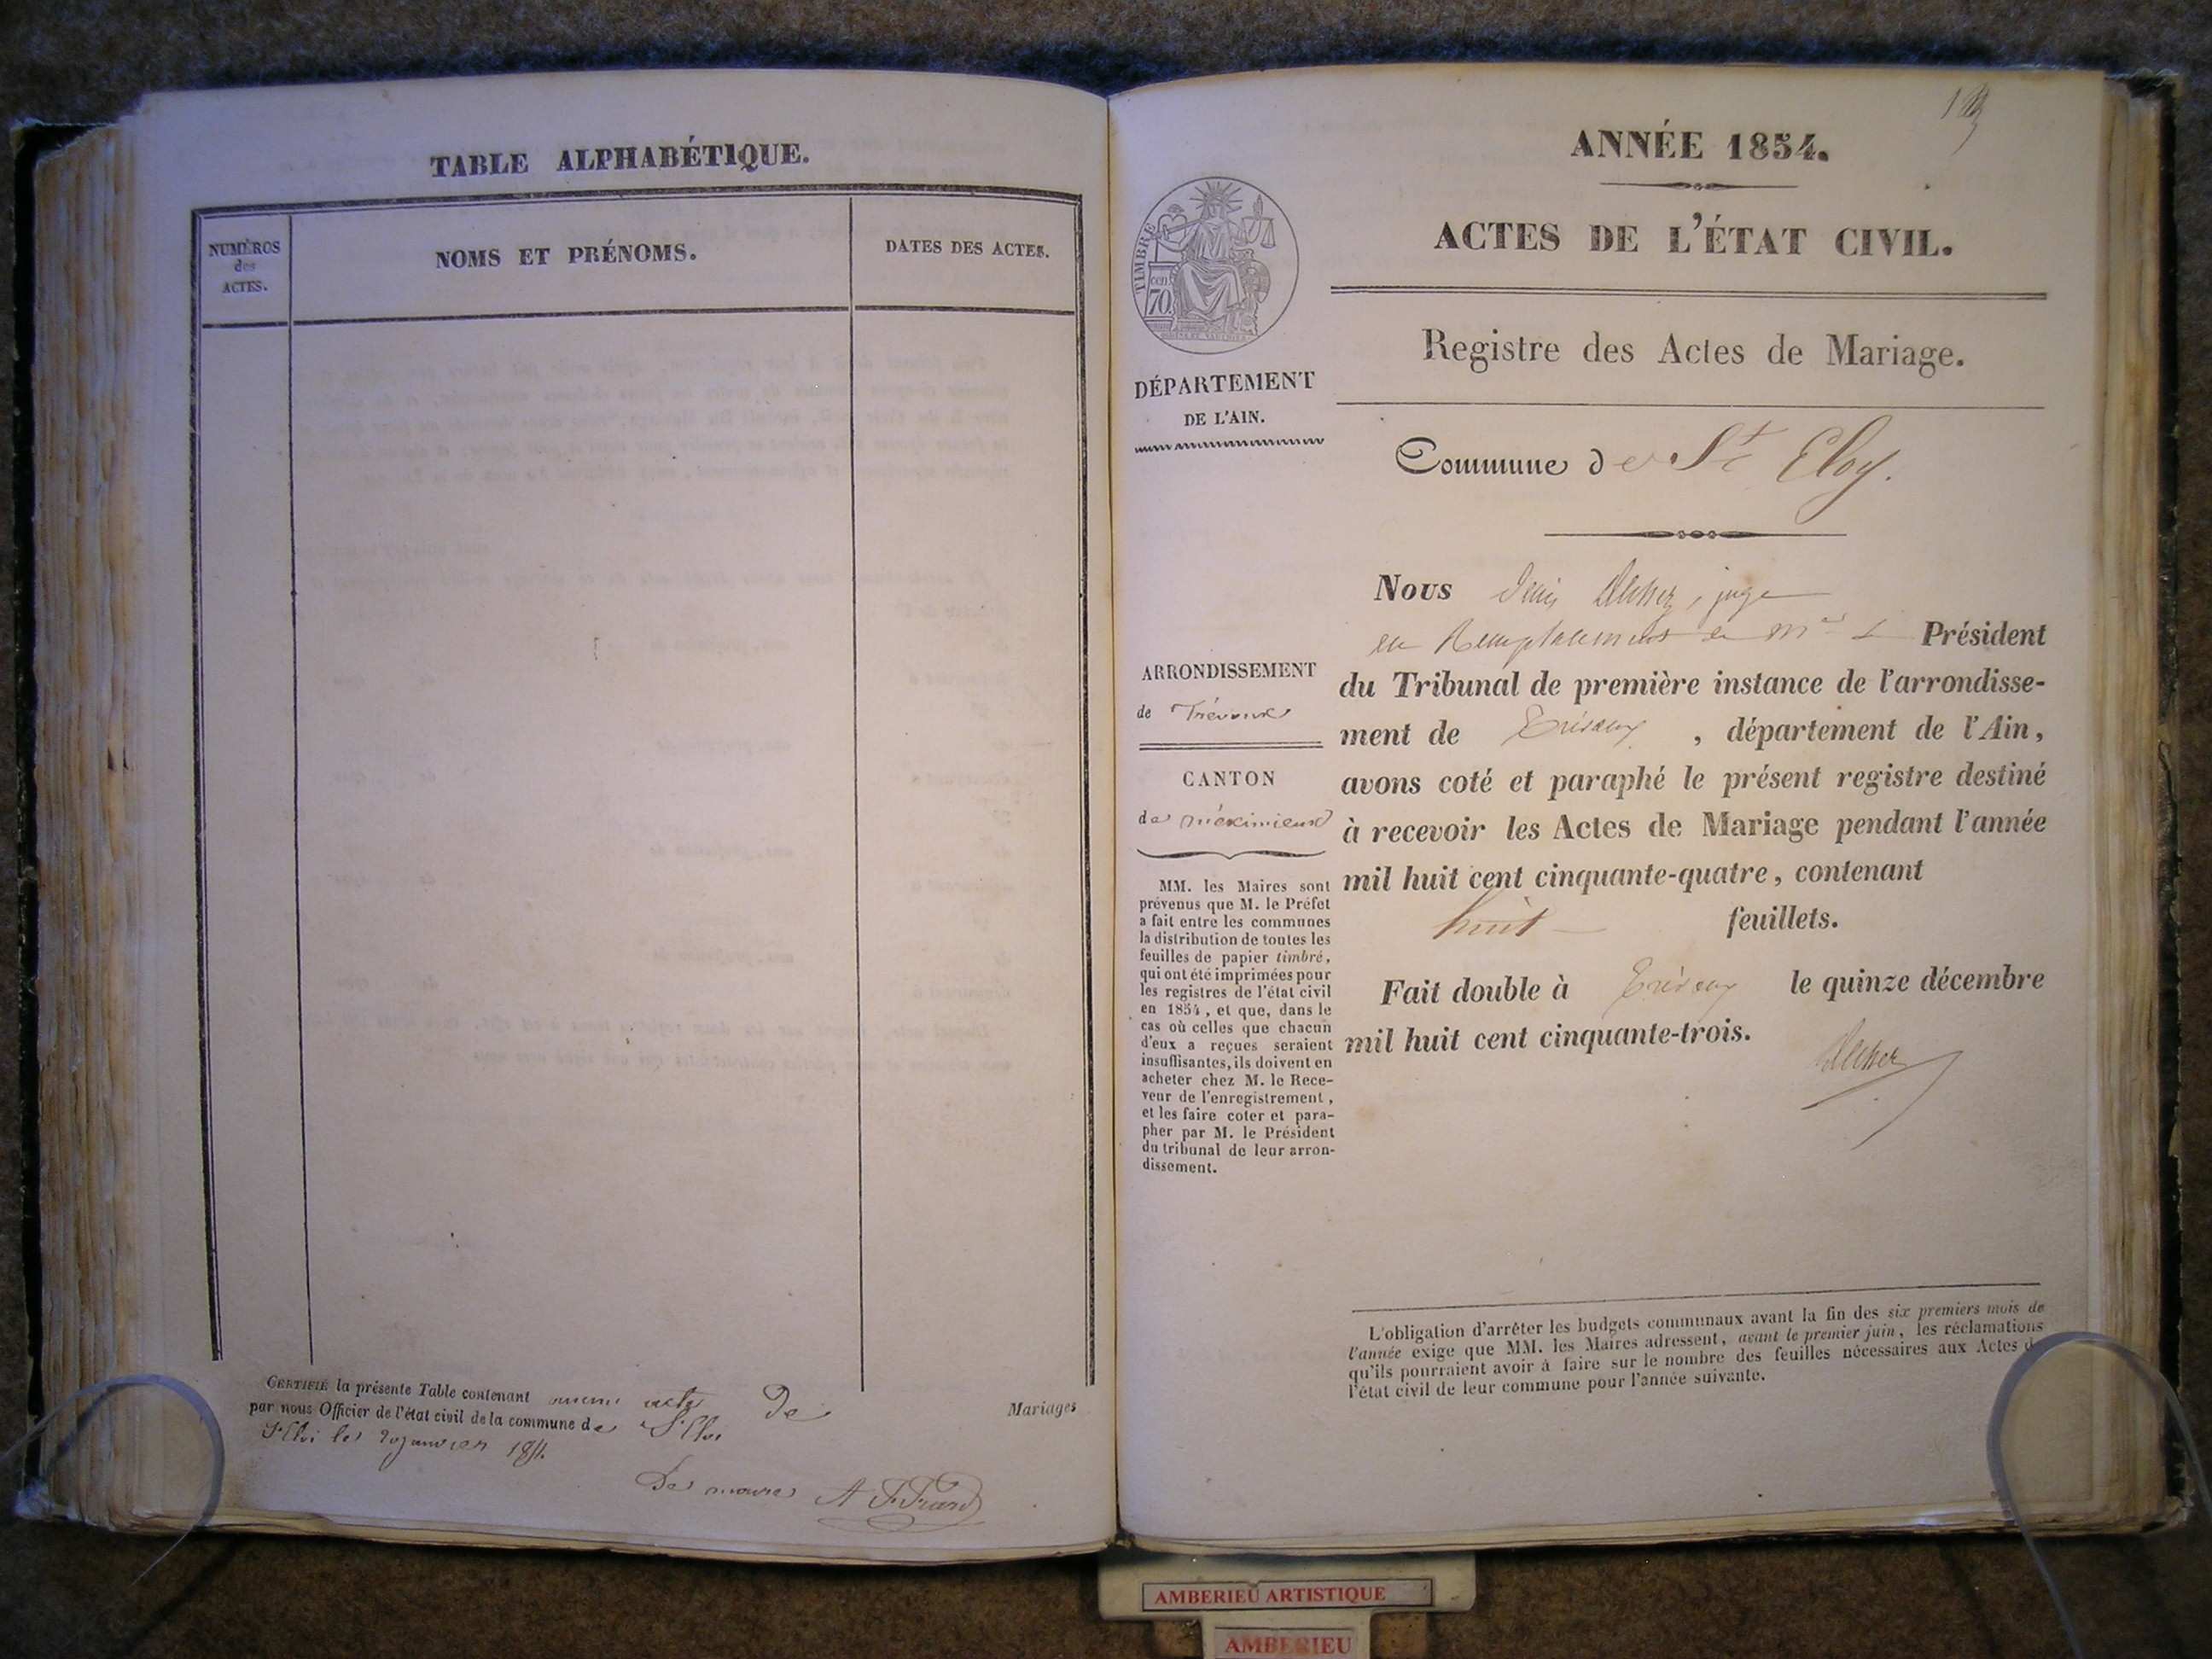 TABLE ALPHABÉTIQUE.
NUMÉROS
des
ACTES.
NOMS ET PRÉNOMS.
DATES DES ACTES.
CERTIFIÉ la présente Table contenant aucun acte De Mariages
par nous Officier de l'état civil de la commune de St Eloi
St Eloi le 20 janvier 1854.
Le maire
ANNÉE 1854.
ACTES DE L'ÉTAT CIVIL.
TIMBRE
cen
70.
DÉPARTEMENT
DE L'AIN.
Registre des Actes de Mariage.
Commune de St Eloy.
ARRONDISSEMENT
de Trévoux
CANTON
de Méximieux
MM. les Maires sont
prévenus que M. le Préfet
a fait entre les communes
la distribution de toutes les
feuilles de papier timbré,
qui ont été imprimées pour
les registres de l'état civil
en 1854, et que, dans le
cas où celles que chacun
d'eux a reçues seraient
insuffisantes, ils doivent en
acheter chez M. le Rece-
veur de l'enregistrement,
et les faire coter et para-
pher par M. le Président
du tribunal de leur arron-
dissement.
Nous Denis juge
en Remplacement de Mr le Président
du Tribunal de première instance de l'arrondisse-
ment de Trévoux, département de l'Ain,
avons coté et paraphé le présent registre destiné
à recevoir les Actes de Mariage pendant l'année
mil huit cent cinquante-quatre, contenant
huit feuillets.
Fait double à Trévoux le quinze décembre
mil huit cent cinquante-trois.
L'obligation d'arrêter les budgets communaux avant la fin des six premiers mois de
l'année exige que MM. les Maires adressent, avant le premier juin, les réclamations
qu'ils pourraient avoir à faire sur le nombre des feuilles nécessaires aux Actes de
l'état civil de leur commune pour l'année suivante.
AMBERIEU ARTISTIQUE
AMBERIEU